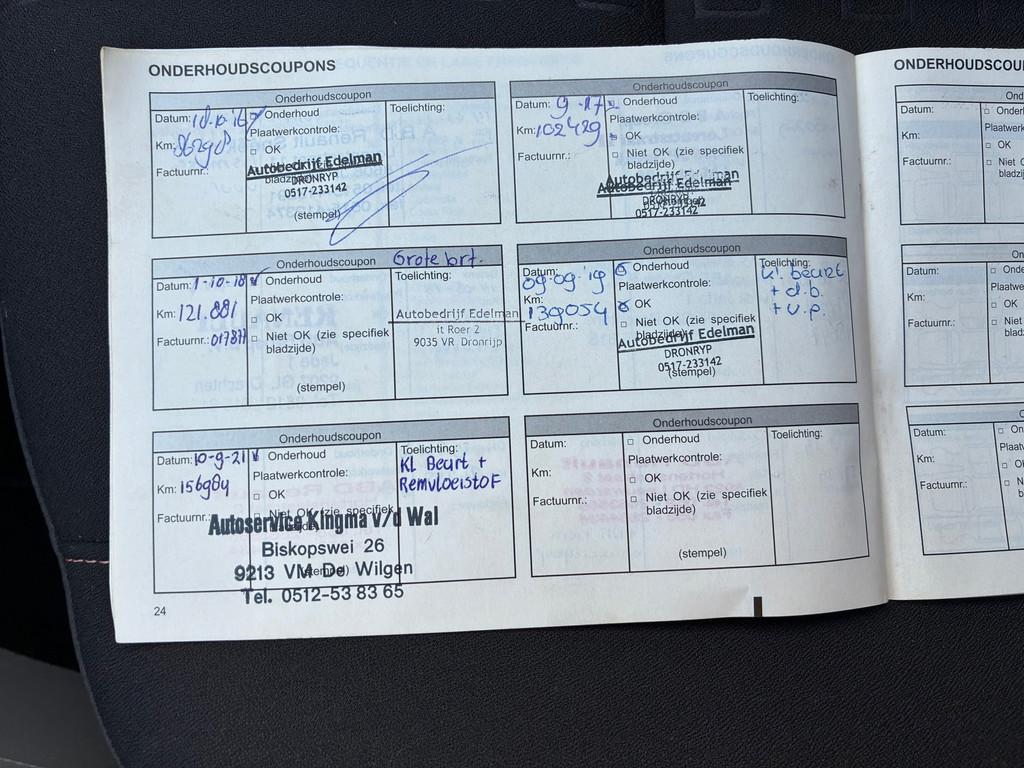 ONDERHOUDSCOUPONS
Onderhoudscoupon
Datum:
Onderhoud
Toelichting:
Plaatwerkcontrole:
Km:
OK
Factuurnr.:
Autobedrijf Edelman
DRONRYP
0517-233142
(stempel)
Onderhoudscoupon
Datum: 9-17
Onderhoud
Toelichting:
Plaatwerkcontrole:
Km: 102429
OK
Niet OK (zie specifiek
bladzijde)
Factuurnr.:
Autobedrijf Edelman
DRONRYP
0517-233142
Onderhoudscoupon
Grote brt.
Datum: 1-10-18
Onderhoud
Toelichting:
Plaatwerkcontrole:
Km: 121.881
OK
Factuurnr.: 017877
Niet OK (zie specifiek
bladzijde)
Autobedrijf Edelman
it Roer 2
9035 VR Dronrijp
(stempel)
Onderhoudscoupon
Datum: 09-09-'19
Onderhoud
Toelichting:
Kl. beurt
+ d.b.
+ v.p.
Plaatwerkcontrole:
Km: 139054
OK
Factuurnr.:
Niet OK (zie specifiek
bladzijde)
Autobedrijf Edelman
DRONRYP
0517-233142
(stempel)
Onderhoudscoupon
Datum: 10-9-21
Onderhoud
Toelichting:
Kl Beurt +
Remvloeistof
Plaatwerkcontrole:
Km: 156984
OK
Factuurnr.:
Niet OK (zie specifiek
Autoservice Kingma v/d Wal
Biskopswei 26
9213 VM De Wilgen
Tel. 0512-53 83 65
(stempel)
Onderhoudscoupon
Datum:
Onderhoud
Toelichting:
Plaatwerkcontrole:
Km:
OK
Factuurnr.:
Niet OK (zie specifiek
bladzijde)
(stempel)
24
ONDERHOUDSCOU
Datum:
Km:
OK
Factuurnr.:
Datum:
Km:
OK
Factuurnr.:
Datum:
Km:
OK
Factuurnr.: